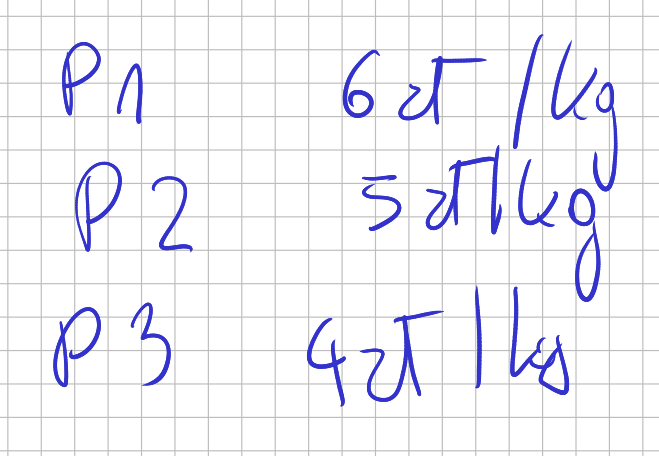 P1 6 zł/kg
P2 5 zł/kg
P3 4 zł/kg